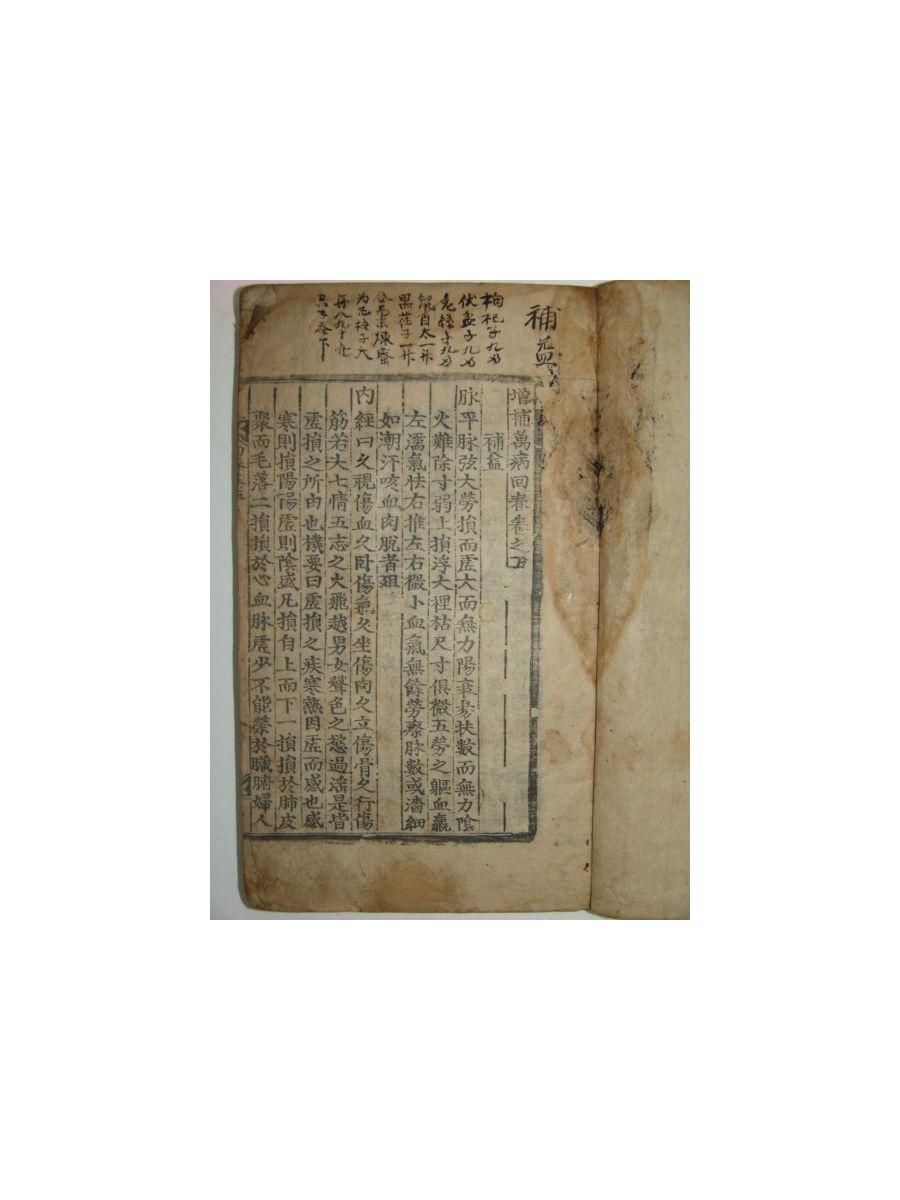 補益
枸杞子九刄
伏盆子九刄
兎絲子九刄
鼠目太一升
黒荏子一升
煉蜜
子大
八九十
增補萬病回春卷之下
補益
脉平脉弦大勞損而虛大而無力陽衰易扶數而無力陰
火難除寸弱上損浮大裡枯尺寸俱微五勞之軀血羸
左濡氣怯右推左右微小血氣無餘勞瘵脉數或濇細
如潮汗咳血肉脫者殂
內經曰久視傷血久卧傷氣久坐傷肉久立傷骨久行傷
筋若夫七情五志之火飛越男女聲色之慾過淫是皆
虛損之所由也機要曰虛損之疾寒熱因虛而感也感
寒則損陽陽虛則陰盛凡損自上而下一損損於肺皮
聚而毛落二損損於心血脉虛少不能榮於臟腑婦人